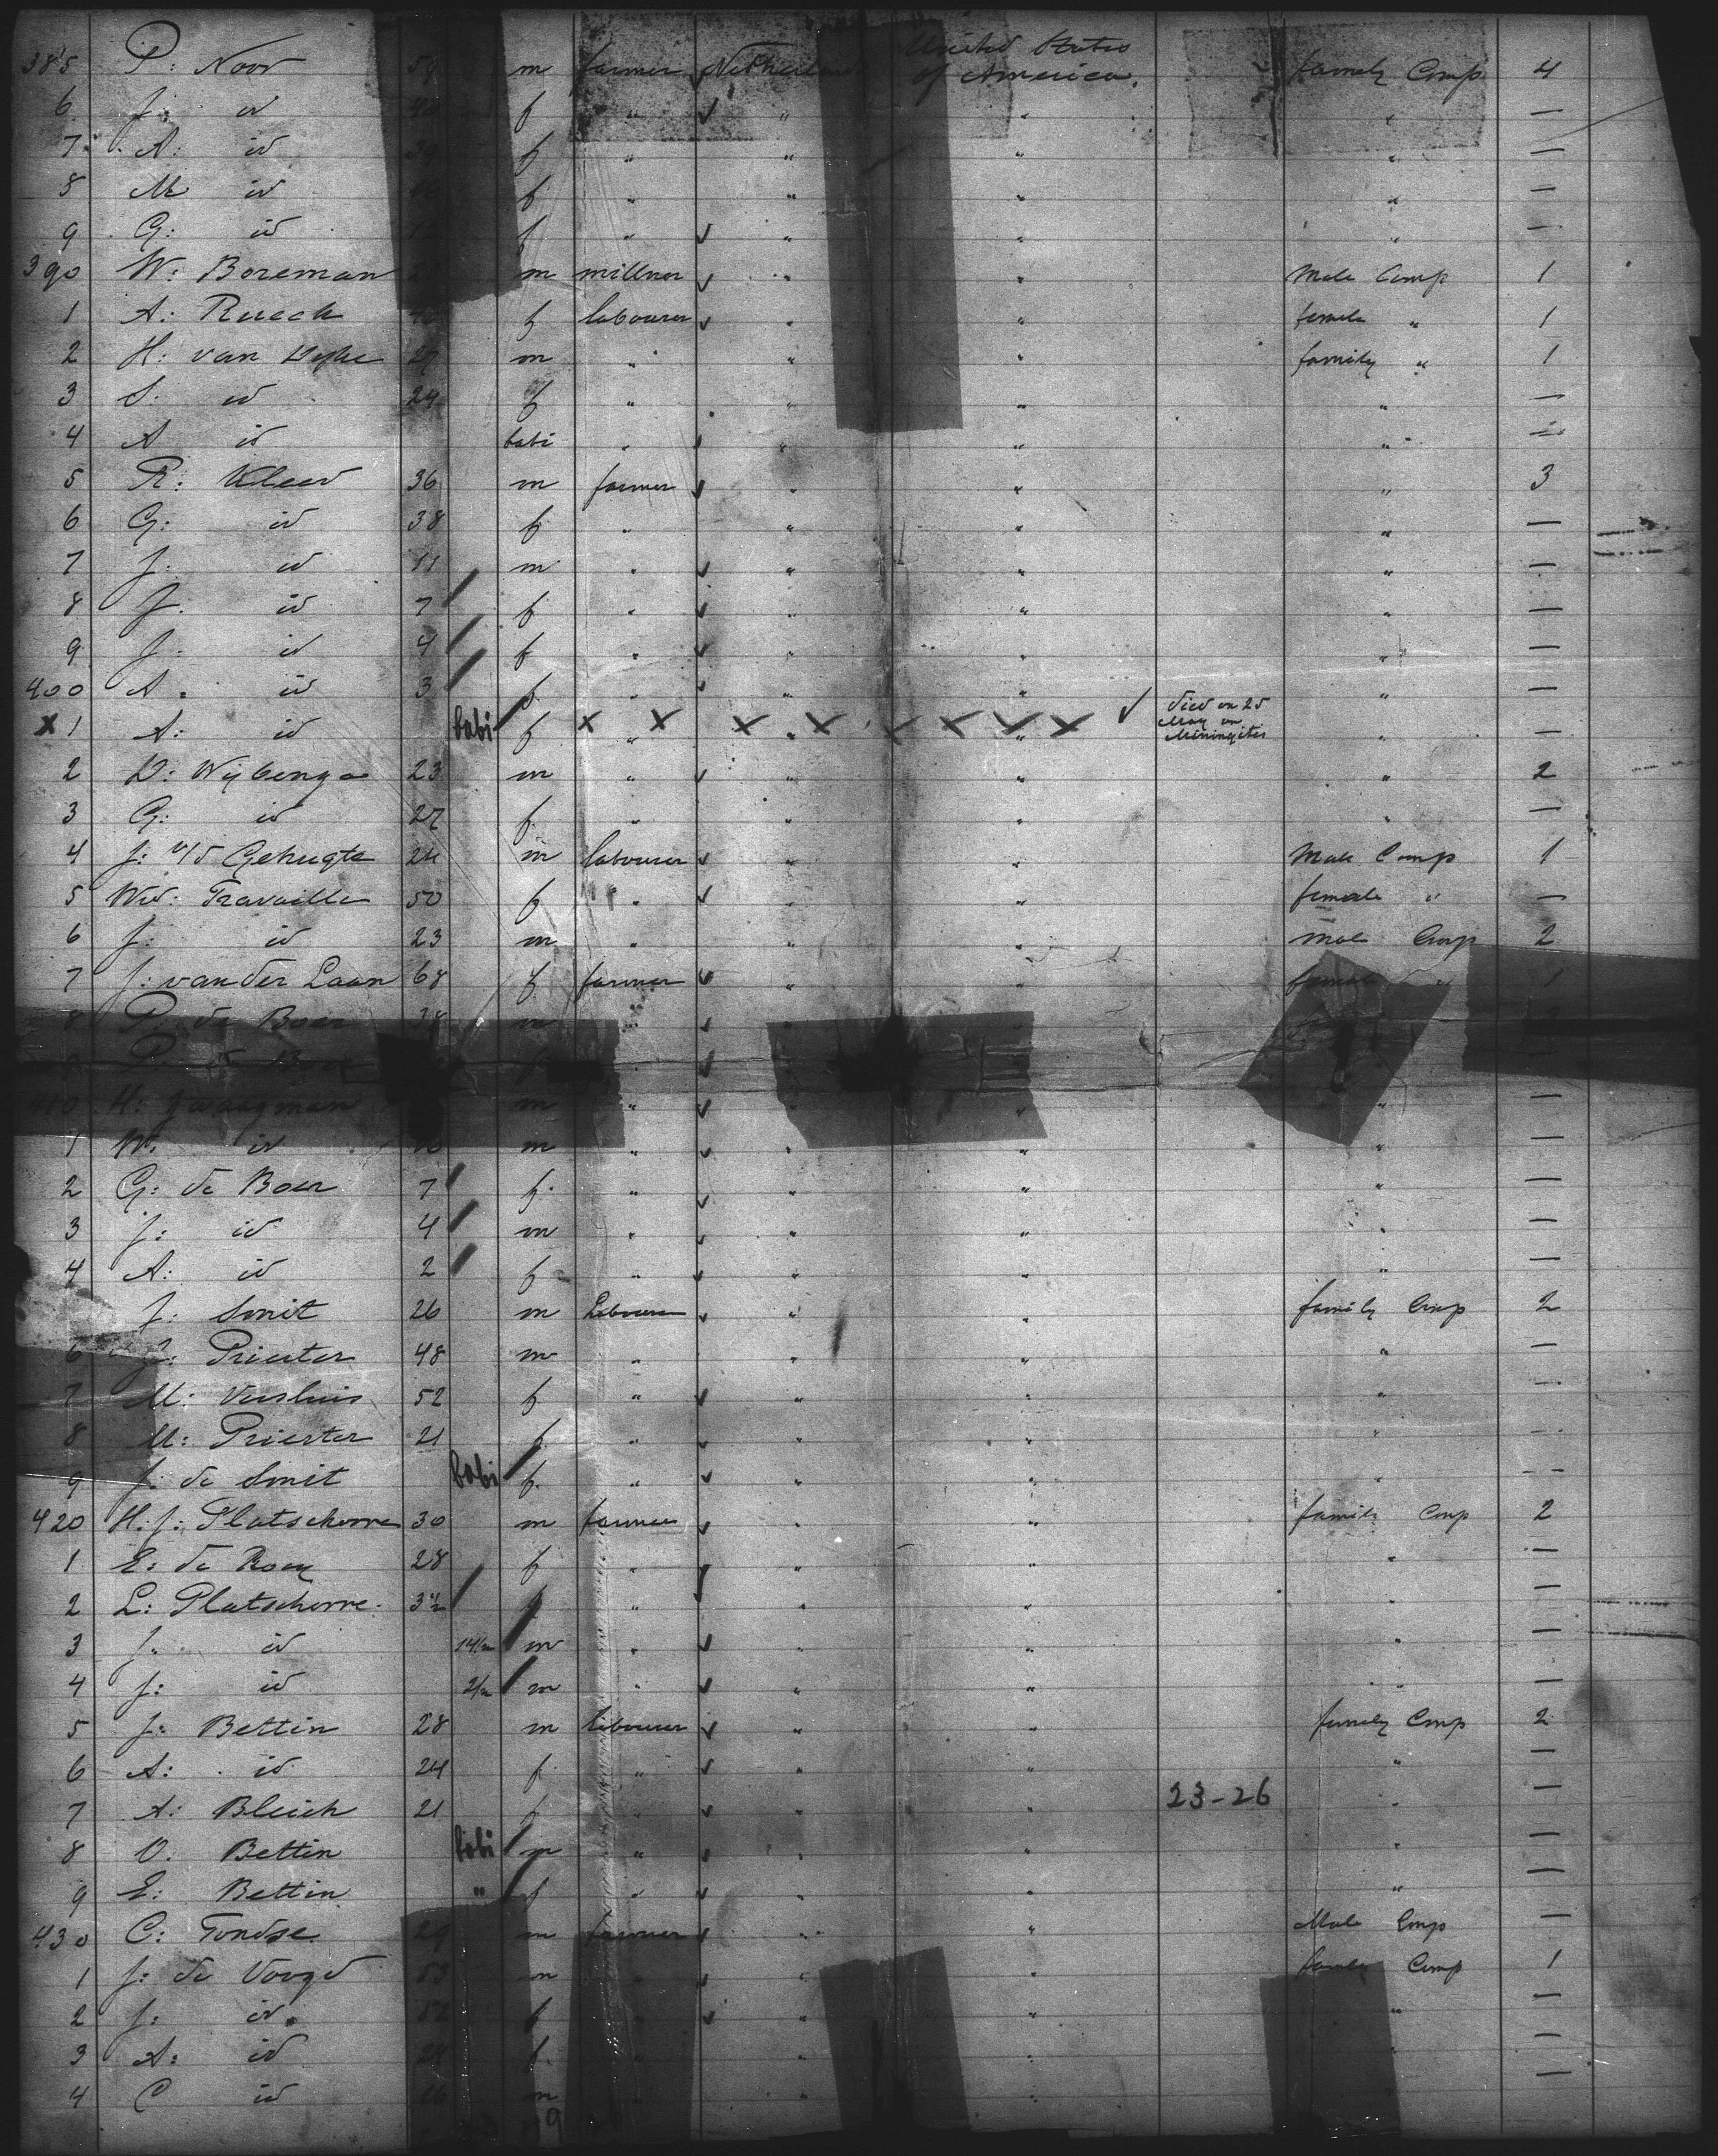 385 P: Noor 59 m farmer Netherland United States of America. family Comp 4
6 J: id f " " " " —
7 A: id f " " " " —
8 M id f " " " " —
9 G: id f " " " " —
390 W: Boreman m millner " " Male Comp 1
1 A: Rueck f labourer " " female " 1
2 H: van Dyke 27 m " " " family " 1
3 S. id 24 f " " " " —
4 A id babi " " " " —
5 R: Kleed 36 m farmer " " " 3
6 G: id 38 f " " " " —
7 J: id 11 m " " " " —
8 J. id 7 f " " " " —
9 J: id 4 f " " " " —
400 A: id 3 f " " " " —
x 1 A: id babi f x x x x x x x x died on 25 May on Miningites " —
2 D: Wybenga 23 m " " " " 2
3 G: id 27 f " " " " —
4 J: v/d Gehugte 24 m labourer " " Male Comp 1
5 Wed: Travaille 50 f " " " female " —
6 J: id 23 m " " " male Comp 2
7 J: van der Laan 68 f farmer " " female " 1
8 P. de Boer 38 m
f
410 H: Zwaagman m " " " " —
1 W. id m " " " " —
2 G: de Boer 7 f. " " " " —
3 J: id 4 m " " " " —
4 A: id 2 f " " " " —
J: Smit 26 m Labourer " " family Comp 2
6 J: Priester 48 m " " " " —
7 M: Versluis 52 f " " " " —
8 M: Priester 21 f " " " " —
9 J: de Smit babi f. " " " " —
420 H: J: Platschorre 30 m farmer " " family Comp 2
1 E: de Roeg 28 f " " " " —
2 L: Platschorre. 3½ f " " " " —
3 J: id 14/m m " " " " —
4 J: id 2/m m " " " " —
5 J: Bettin 28 m labourer " " family Comp 2
6 A: id 24 f " " " " —
7 A: Bleich 21 f " " " 23-26 " —
8 O. Bettin babi m " " " " —
9 E: Bettin " f " " " " —
430 C: Tondse. 29 m farmer " " Male Comp —
1 J: de Voogd 53 m " " " family Comp 1
2 J: id. 52 f " " " —
3 A: id f. " " —
4 C id 16 m " " —